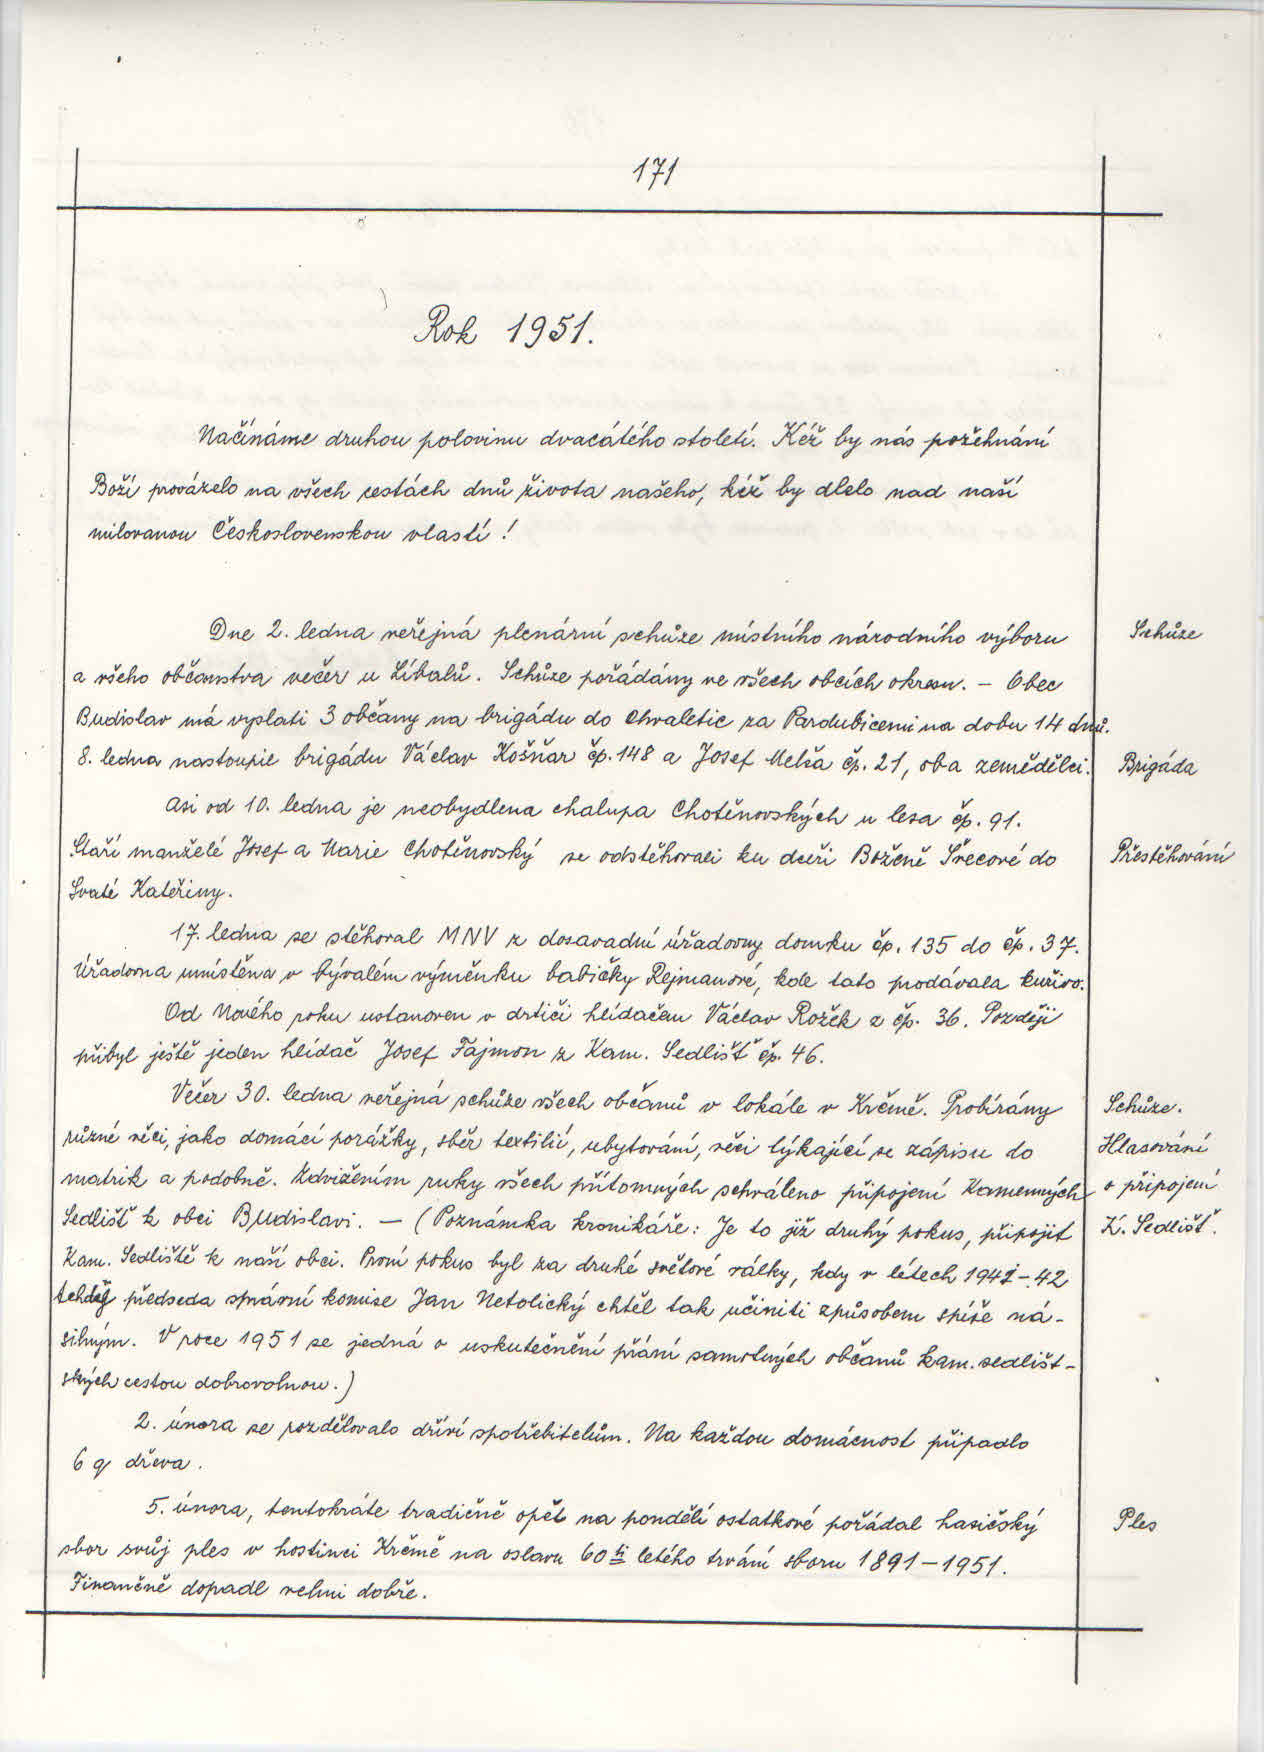 171
Rok 1951.
Načínáme druhou polovinu dvacátého století. Kéž by nás požehnání
Boží provázelo na všech cestách dnů života našeho, kéž by dlelo nad naší
milovanou Československou vlastí!
Dne 2. ledna veřejná plenární schůze místního národního výboru
Schůze
a všeho občanstva večer u Líbalů. Schůze pořádány ve všech obcích okresu. – Obec
Budislav má vyslati 3 občany na brigádu do Chvaletic za Pardubicemi na dobu 14 dnů.
8. ledna nastoupil brigádu Václav Košňar čp. 148 a Josef Melša čp. 21, oba zemědělci.
Brigáda
Asi od 10. ledna je neobydlena chalupa Chotěnovských u lesa čp. 91.
Staří manželé Josef a Marie Chotěnovský se odstěhovali ku dceři Boženě Švecové do
Přestěhování
Svaté Kateřiny.
17. ledna se stěhoval MNV z dosavadní úřadovny domku čp. 135 do čp. 37.
Úřadovna umístěna v bývalém výměnku babičky Rejmanové, kde tato prodávala kuřivo.
Od Nového roku ustanoven v drtiči hlídačem Václav Rožek z čp. 36. Později
přibyl ještě jeden hlídač Josef Fajmon z Kam. Sedlišť čp. 46.
Večer 30. ledna veřejná schůze všech občanů v lokále v Krčmě. Probírány
Schůze.
různé věci, jako domácí porážky, sběr textilií, ubytování, věci týkající se zápisu do
Hlasování
matrik a podobně. Zdvižením ruky všech přítomných schváleno připojení Kamenných
o připojení
Sedlišť k obci Budislavi. – (Poznámka kronikáře: Je to již druhý pokus, připojit
K. Sedlišť.
Kam. Sedliště k naší obci. První pokus byl za druhé světové války, kdy v létech 1941–42
tehdejš předseda správní komise Jan Netolický chtěl tak učiniti způsobem spíše ná-
silným. V roce 1951 se jedná o uskutečnění přání samotných občanů kam. sedlišt-
ských cestou dobrovolnou.)
2. února se rozdělovalo dříví spotřebitelům. Na každou domácnost připadlo
6 q dřeva.
5. února, tentokráte tradičně opět na pondělí ostatkové pořádal hasičský
Ples
sbor svůj ples v hostinci Krčmě na oslavu 60ti letého trvání sboru 1891–1951.
Finančně dopadl velmi dobře.